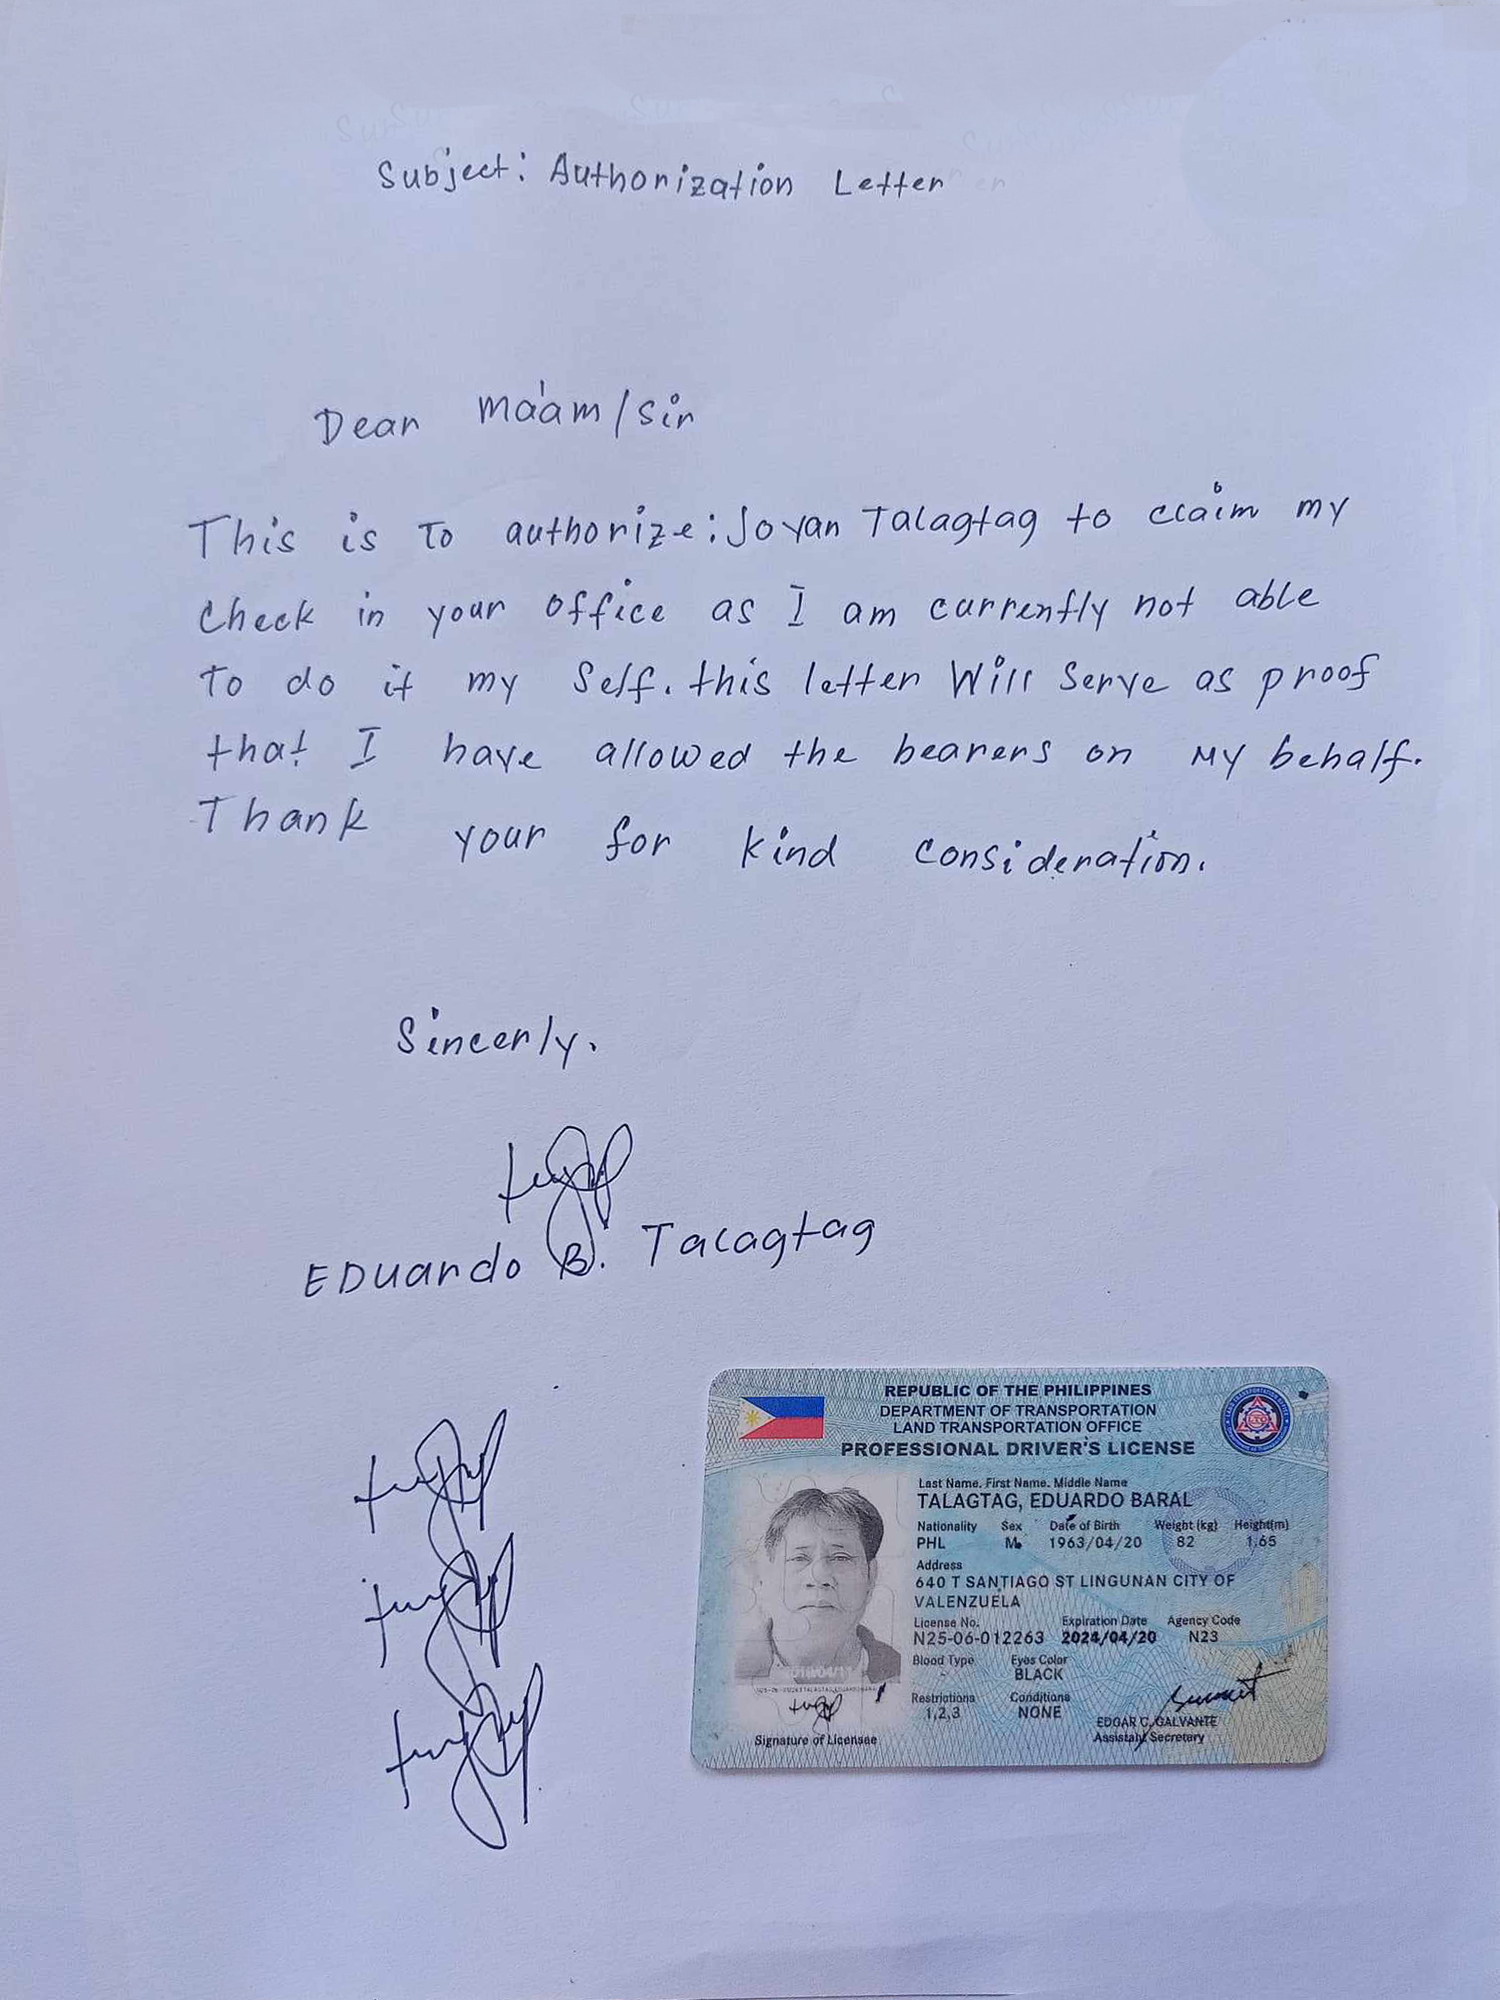 Subject: Authorization Letter
Dear Ma'am/Sir
This is To authorize: Joyan Talagtag to claim my
Check in your office as I am currently not able
To do it my Self. this letter Will Serve as proof
that I have allowed the bearers on My behalf.
Thank your for kind consideration.
Sincerly.
EDuardo B. Talagtag
REPUBLIC OF THE PHILIPPINES
DEPARTMENT OF TRANSPORTATION
LAND TRANSPORTATION OFFICE
PROFESSIONAL DRIVER'S LICENSE
Last Name. First Name. Middle Name
TALAGTAG, EDUARDO BARAL
Nationality Sex Date of Birth Weight (kg) Height(m)
PHL M 1963/04/20 82 1.65
Address
640 T SANTIAGO ST LINGUNAN CITY OF
VALENZUELA
License No. Expiration Date Agency Code
N25-06-012263 2024/04/20 N23
Blood Type Eyes Color
BLACK
Restrictions Conditions
1,2,3 NONE
EDGAR C. GALVANTE
Assistant Secretary
Signature of Licensee